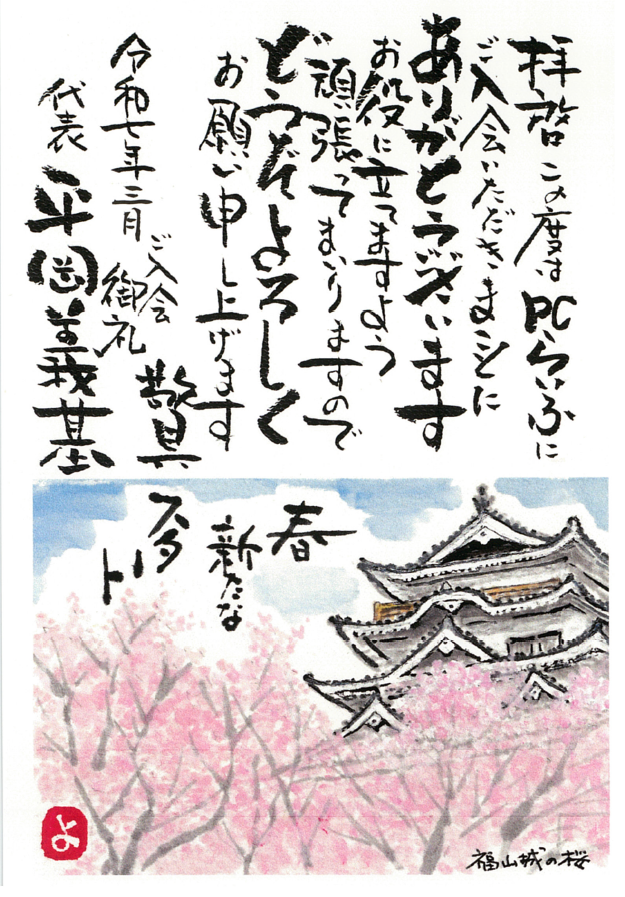 拝啓 この度はPCらいふに
ご入会いただきまことに
ありがとうございます
お役に立てますよう
頑張ってまいりますので
どうぞよろしく
お願い申し上げます
敬具
ご入会
御礼
令和七年三月
代表 平岡義基
春
新たな
スタート
福山城の桜
よ